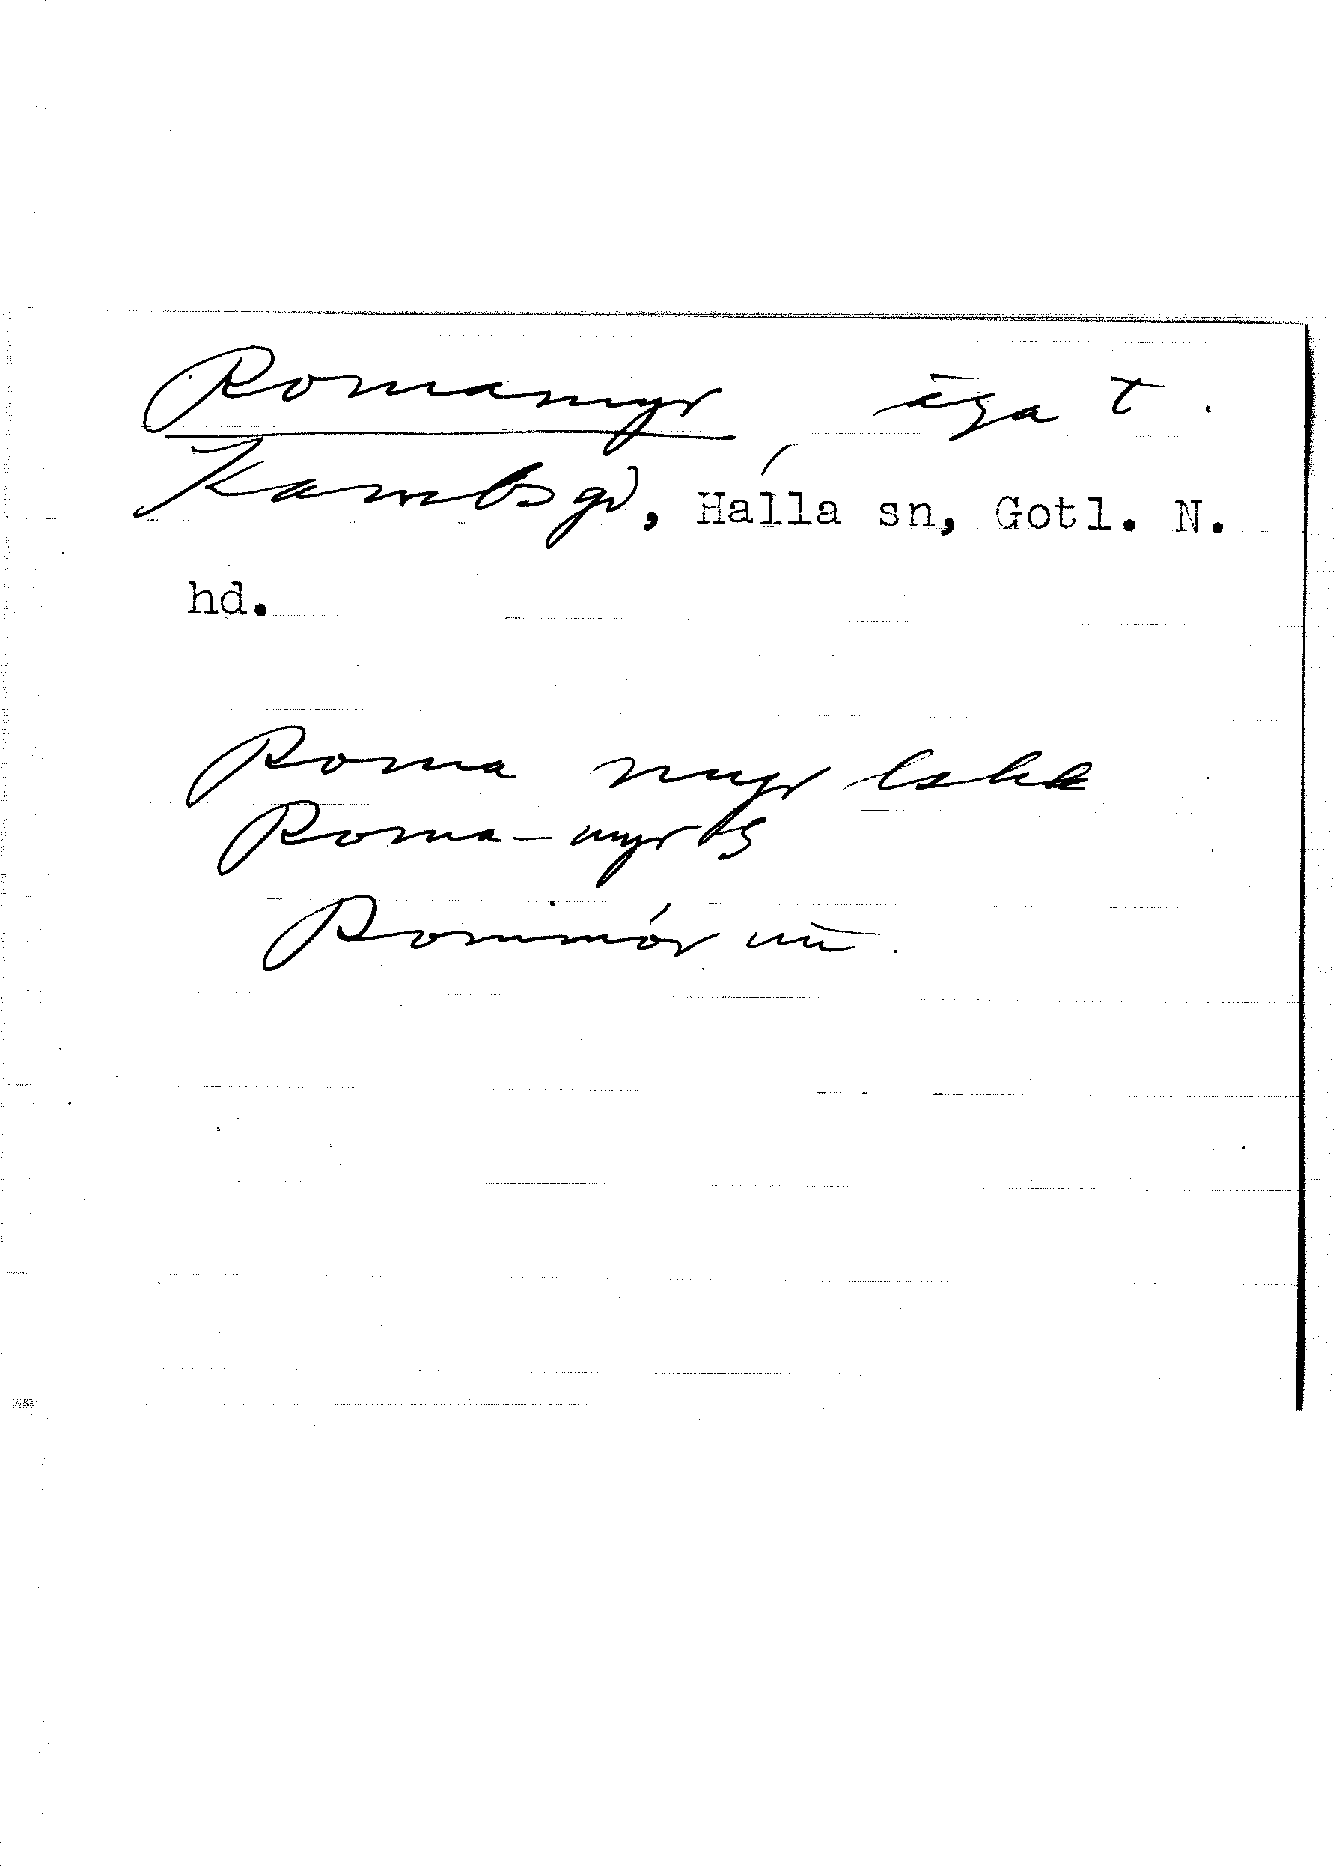 Romamyr äga t.
Kambs gd, Halla sn, Gotl. N.
hd.
Roma myr
Roma-myr
Rommör